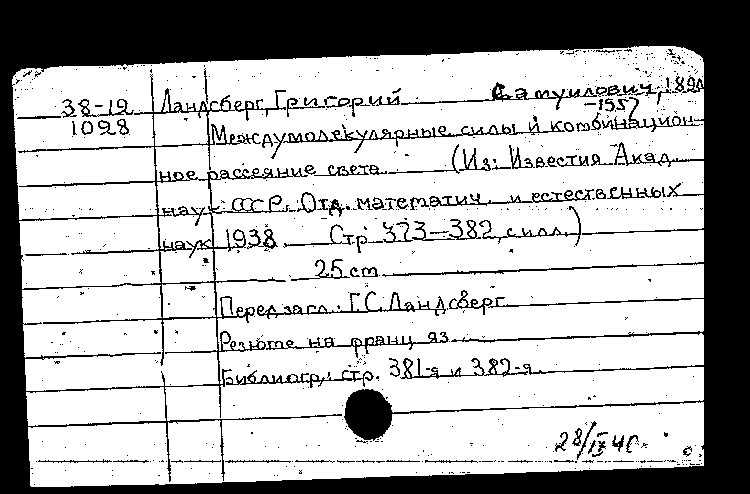 38-19 Ландсберг, Григорий Самуилович, 1890
-1957
1098 Междумолекулярные силы и комбинацион-
ное рассеяние света. (Из: Известия Акад.
наук СССР. Отд. математич. и естественных
наук 1938. Стр 373-382, с илл.)
25 cm
Перед загл.: Г.С. Ландсберг
Резюме на франц яз.
Библиогр.: стр. 381-я и 382-я.
28/IX 40.